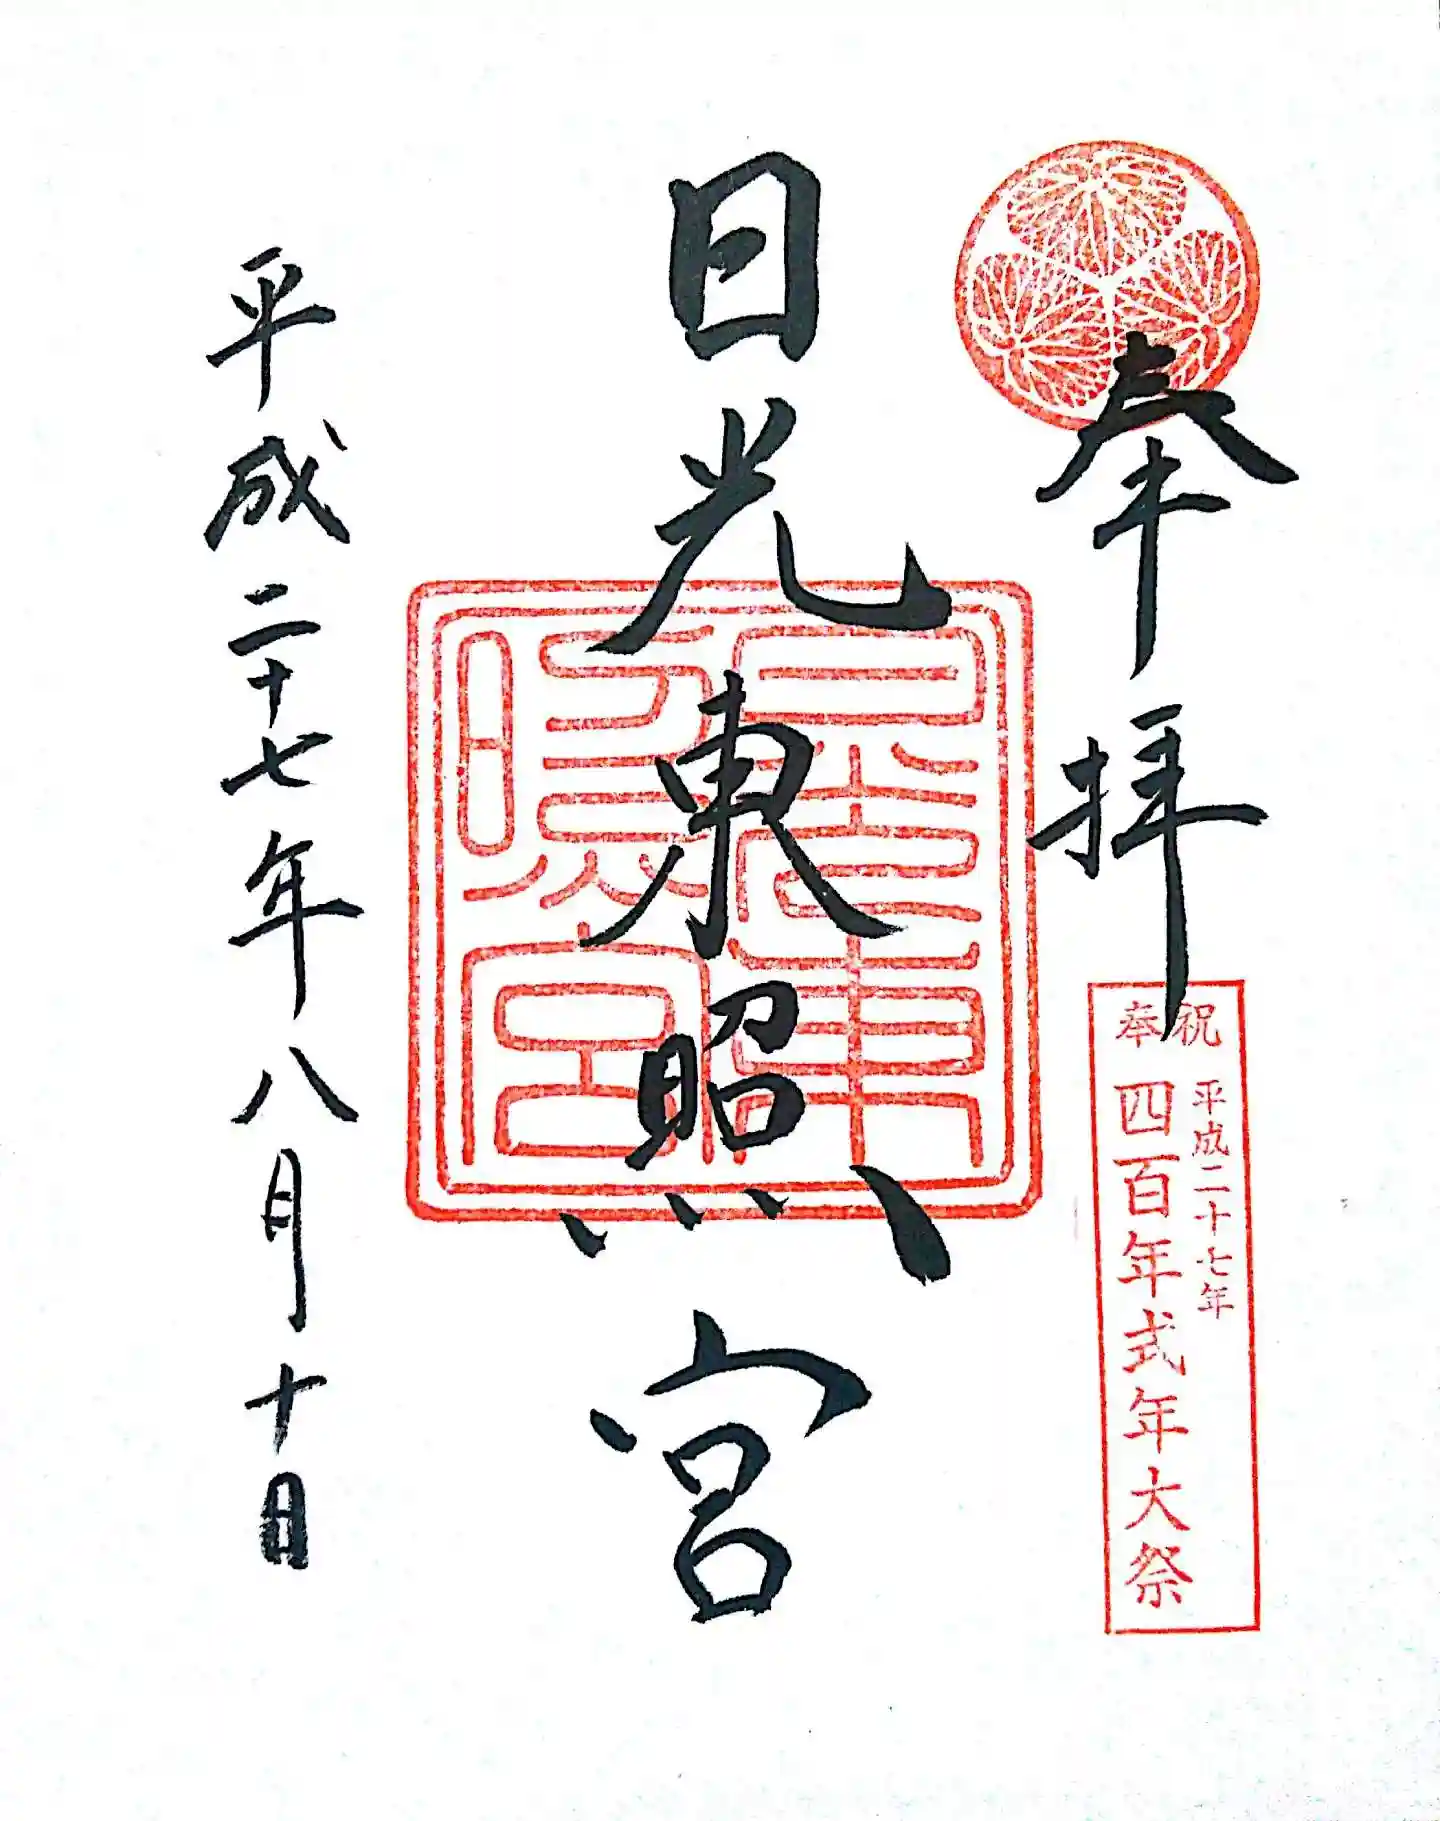 奉拝
奉祝
平成二十七年
四百年式年大祭
日光東照宮
日光東照宮
平成二十七年八月十日